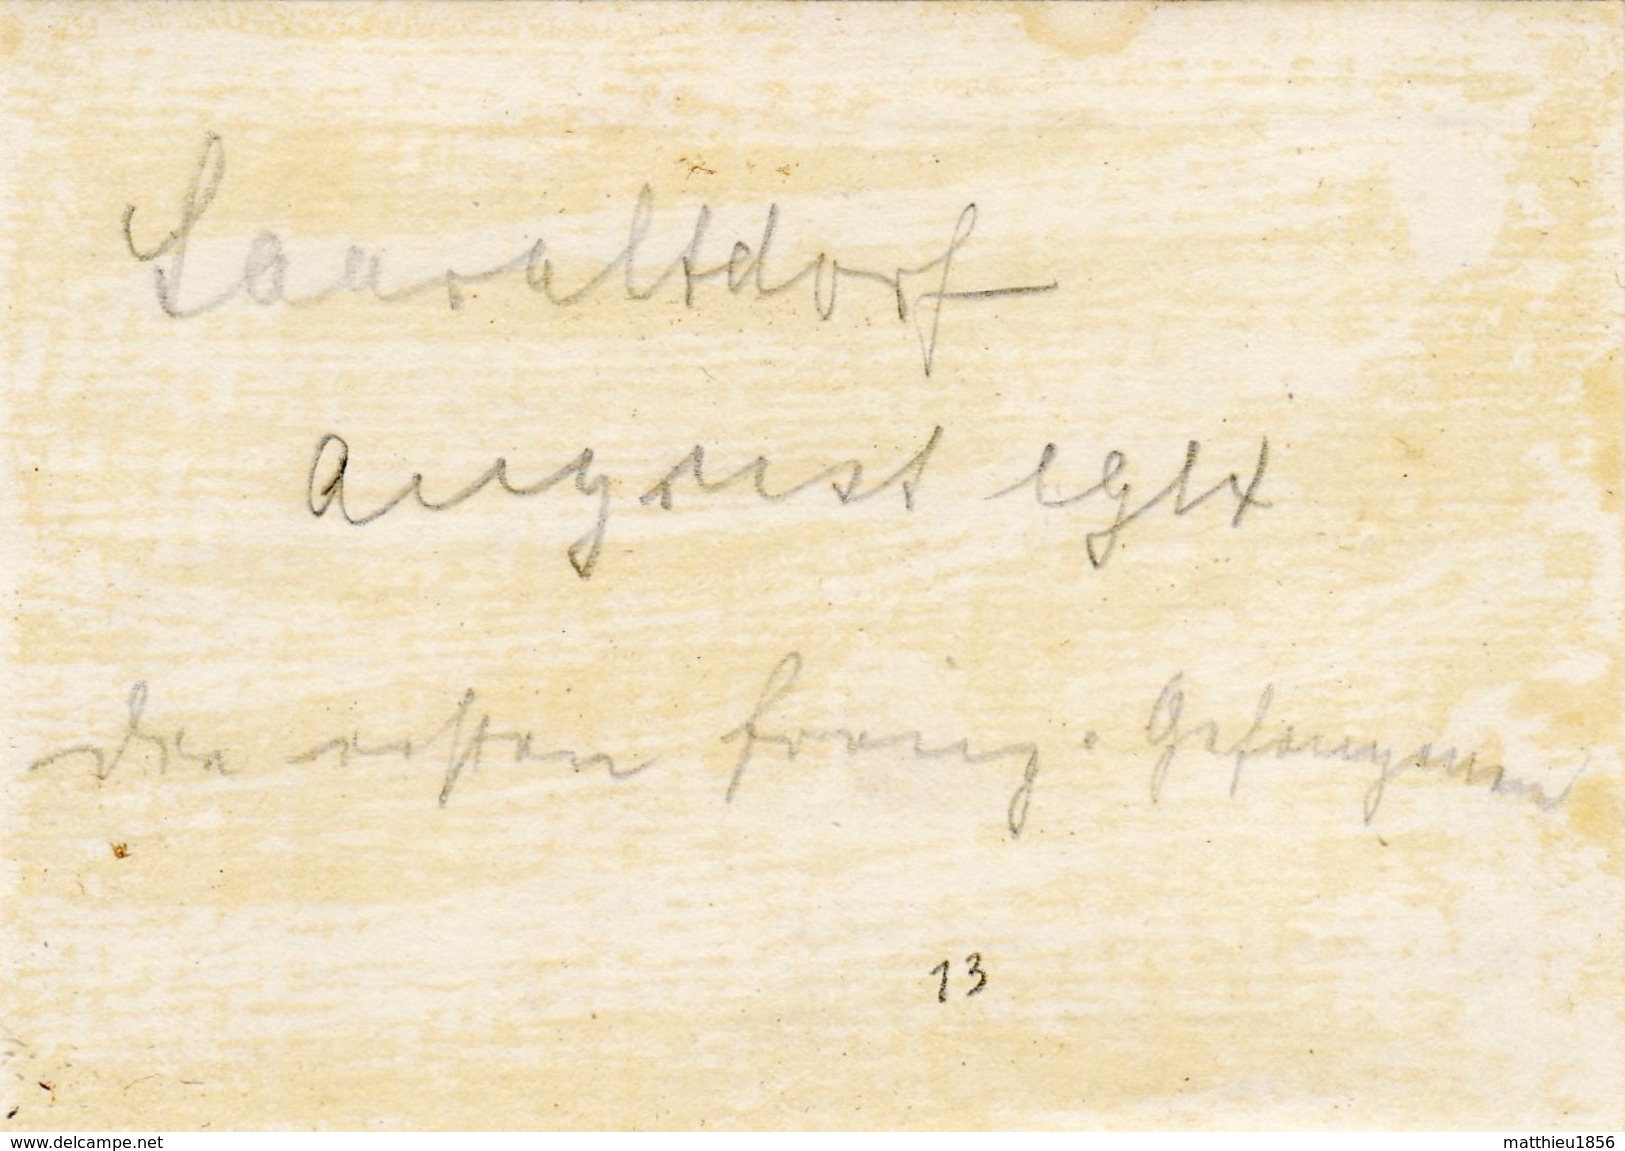 Saaraltdorf
August 1914
Die ersten franz. Gefangenen
13
www.delcampe.net
matthieu1856